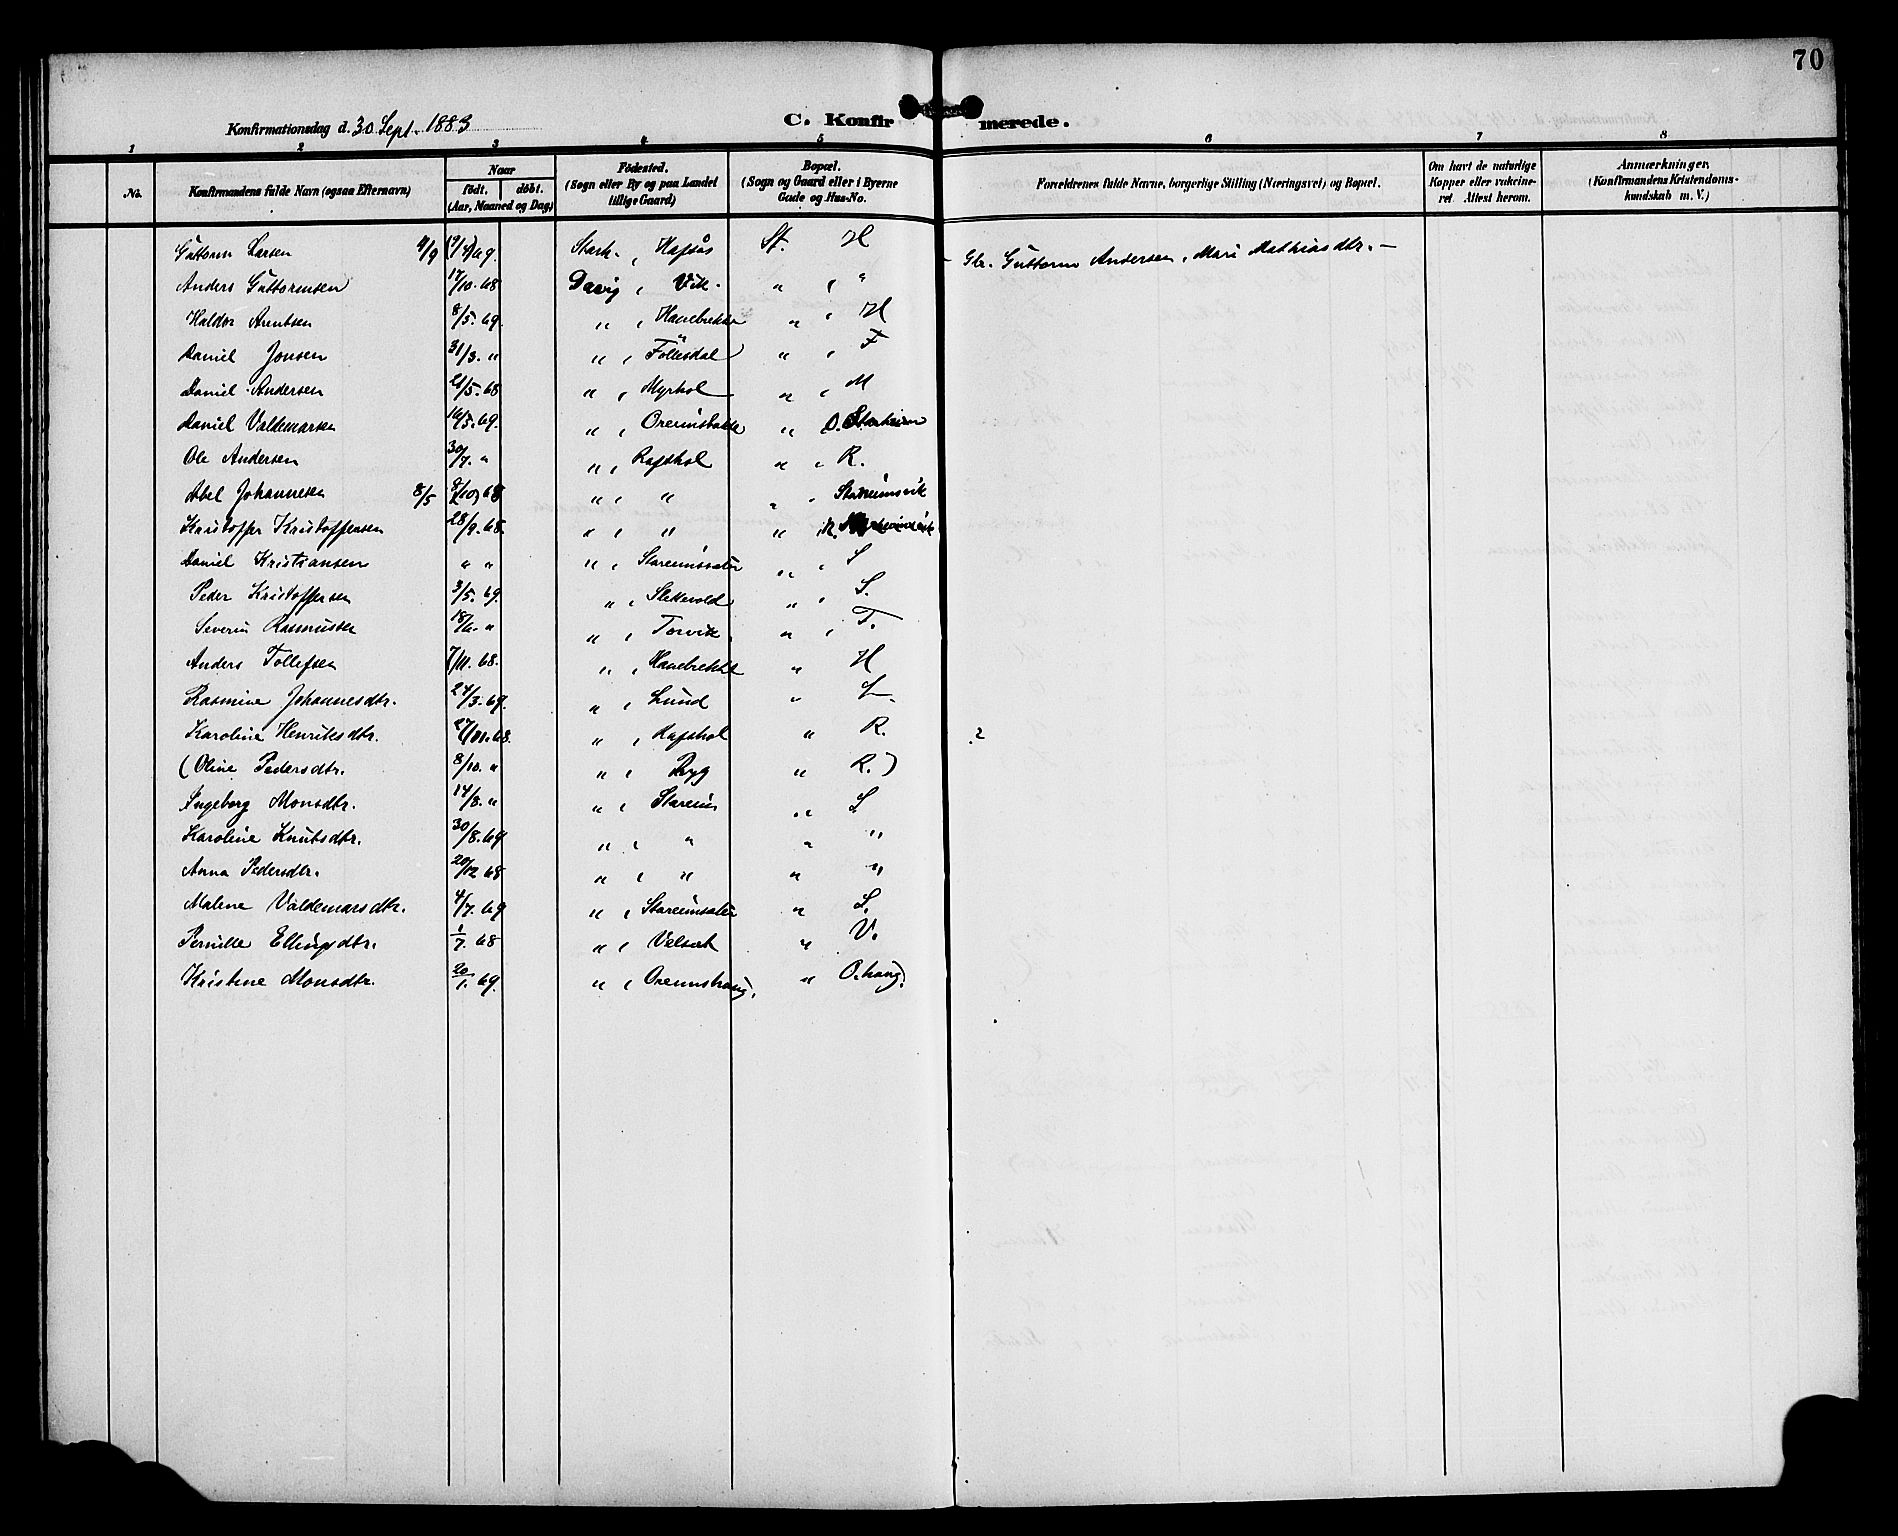 70
Konfirmationsdag d. 30 Sept. 1883
C. Konfirmerede.
1 2 3 4 5 6 7 8
No.
Konfirmandens fulde Navn (ogsaa Efternavn)
Naar
født. døbt.
(Aar, Maaned og Dag)
Fødested.
(Sogn eller By og paa Landet
tillige Gaard)
Bopæl.
(Sogn og Gaard eller i Byerne
Gade og Hus-No.
Forældrenes fulde Navne, borgerlige Stilling (Næringsvei) og Bopæl.
Om havt de naturlige
Kopper eller vakcine-
ret. Attest herom.
Anmærkninger.
(Konfirmandens Kristendoms-
kundskab m. V.)
Guttorm Larsen 4/9 69. Hafsås St. H Guttorm Andersen, Mari Mathiasdtr. —
Anders Guttormsen 17/10. 68 Davig, Vik. " , "
Haldor Arentsen 8/5. 69. " , Hanebrekke " , H
Daniel Jonsen 31/3. " " , Föllesdal " , F
Daniel Andersen 21/5. 68 " , Myrhol " , M
Daniel Valdemarsen 16/5. 69. " , " O. Starheim
Ole Andersen 30/7. " " , Rafshol " , R.
Abel Johannesen 8/5 9/10 68 " , " " , Stareimsvik
Kristoffer Kristoffersen 28/9. 68. " , " "
Daniel Kristiansen " " " , Stareimsæter " , S
Peder Kristoffersen 3/5. 69. " , Slettevold " , S.
Severin Rasmussen 18/6. " " , Torvik. " , T.
Anders Tollefsen 7/11. 68. " , Hanebrekke " H
Rasmine Johannesdtr. 24/3. 69. " , Lund " L.
Karoline Henriksdtr. 27/11. 68. " , Rafshol " R. ?
(Oline Pedersdtr. 8/10. " " , Ryg " R.)
Ingeborg Monsdtr. 14/8. " " , Stareim " S
Karoline Knutsdtr. 30/8. 69 " , " " "
Anna Pedersdtr. 20/12 68 " , " " "
Malene Valdemarsdtr. 4/7. 69 " , Stareimsæter " S.
Pernille Ellingsdtr. 1/7. 68 " , Velsæt " V.
Kristine Monsdtr. 20/1. 69. " , Oreimshaug. " O.haug.